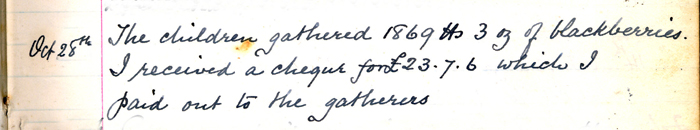 Oct 28th The children gathered 1869 lbs 3 oz of blackberries.
I received a cheque for £23.7.6 which I
paid out to the gatherers